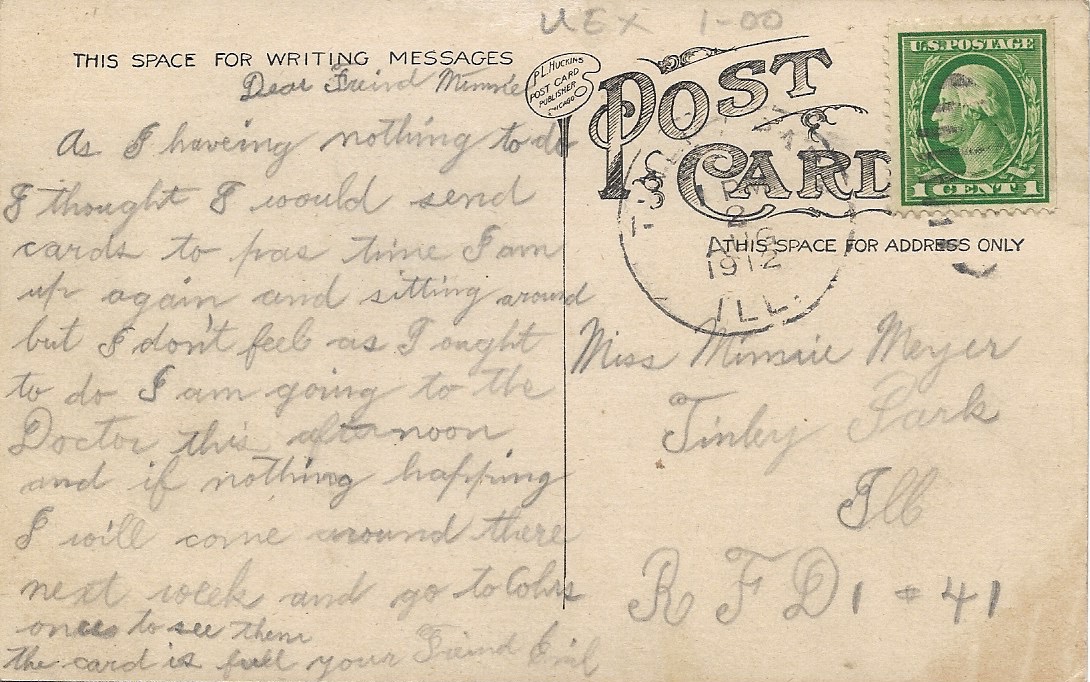 UEX 1-00
THIS SPACE FOR WRITING MESSAGES
Dear Freind Minnie
As I haveing nothing to do
I thought I would send
cards to pas time I am
up again and sitting around
but I don't feel as I ought
to do I am going to the
Doctor this afternoon
and if nothing happing
I will come around there
next week and go to Cohrs
once to see them
the card is full your Freind Emil
P.L. HUCKINS
POST CARD
PUBLISHER
CHICAGO
POST
CARD
U.S. POSTAGE
1 CENT 1
2
AUG
1912
ILL.
THIS SPACE FOR ADDRESS ONLY
Miss Minnie Meyer
Tinley Park
Ill
R F D 1 # 41